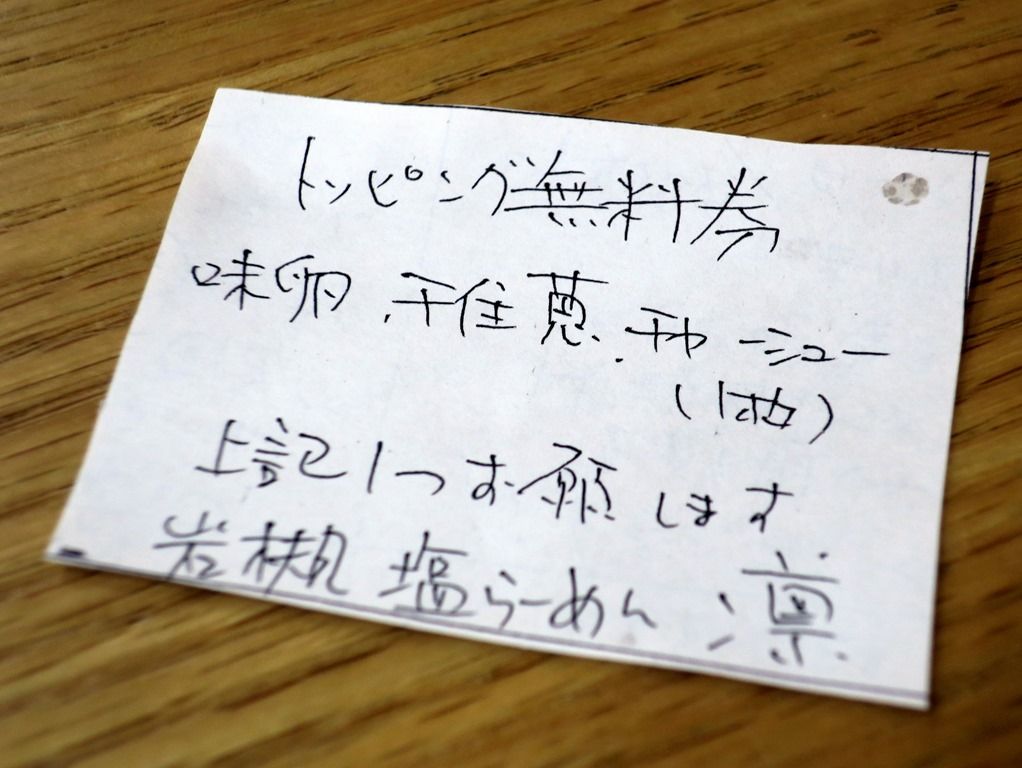 トッピング無料券
味卵、千住葱、チャーシュー
(1枚)
上記1つお願します
岩槻 塩らーめん 凛